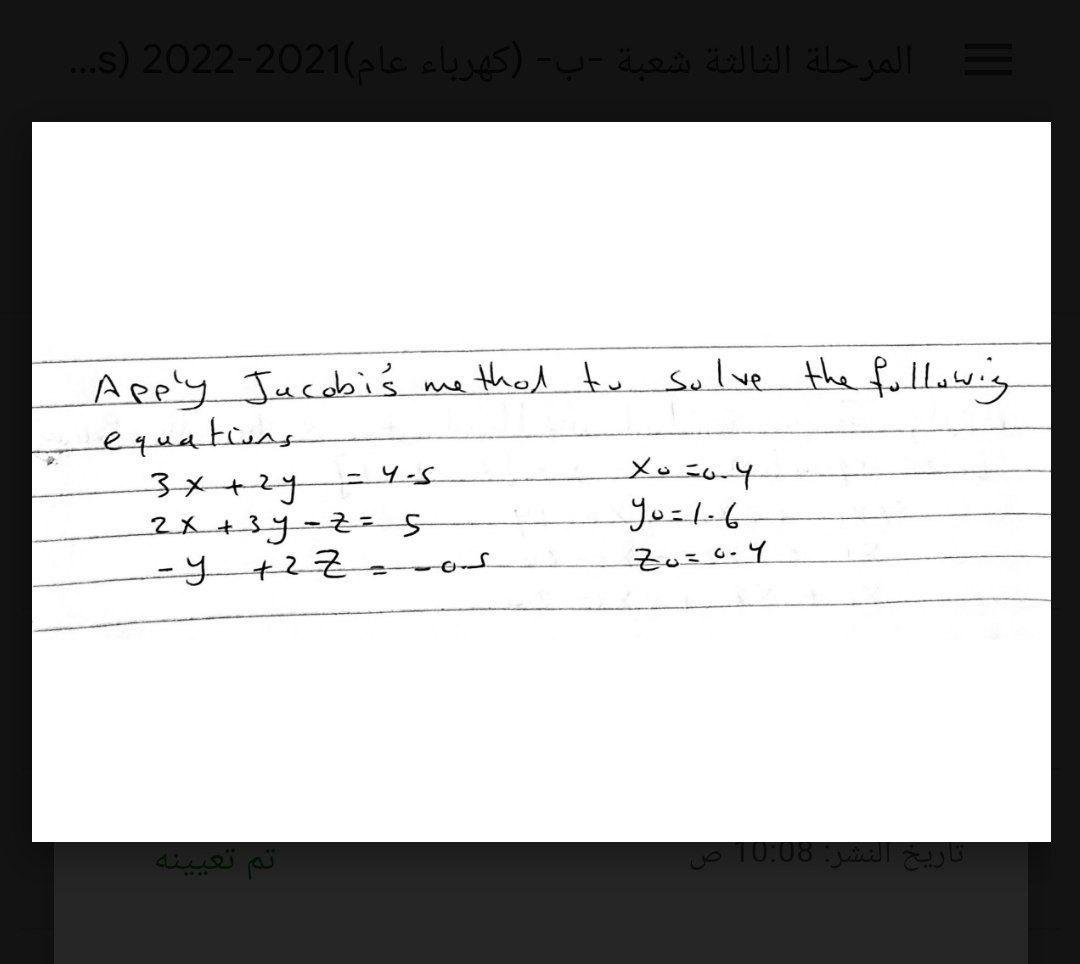 المرحلة الثالثة شعبة -ب- (كهرباء عام)2021-2022 (s...
Apply Jacobi's method to solve the followig
equations
3x + 2y = 4.5 x0 = 0.4
2x + 3y - z = 5 y0 = 1.6
-y + 2z = -0.5 z0 = 0.4
تاريخ النشر: 10:08 ص
تم تعيينه